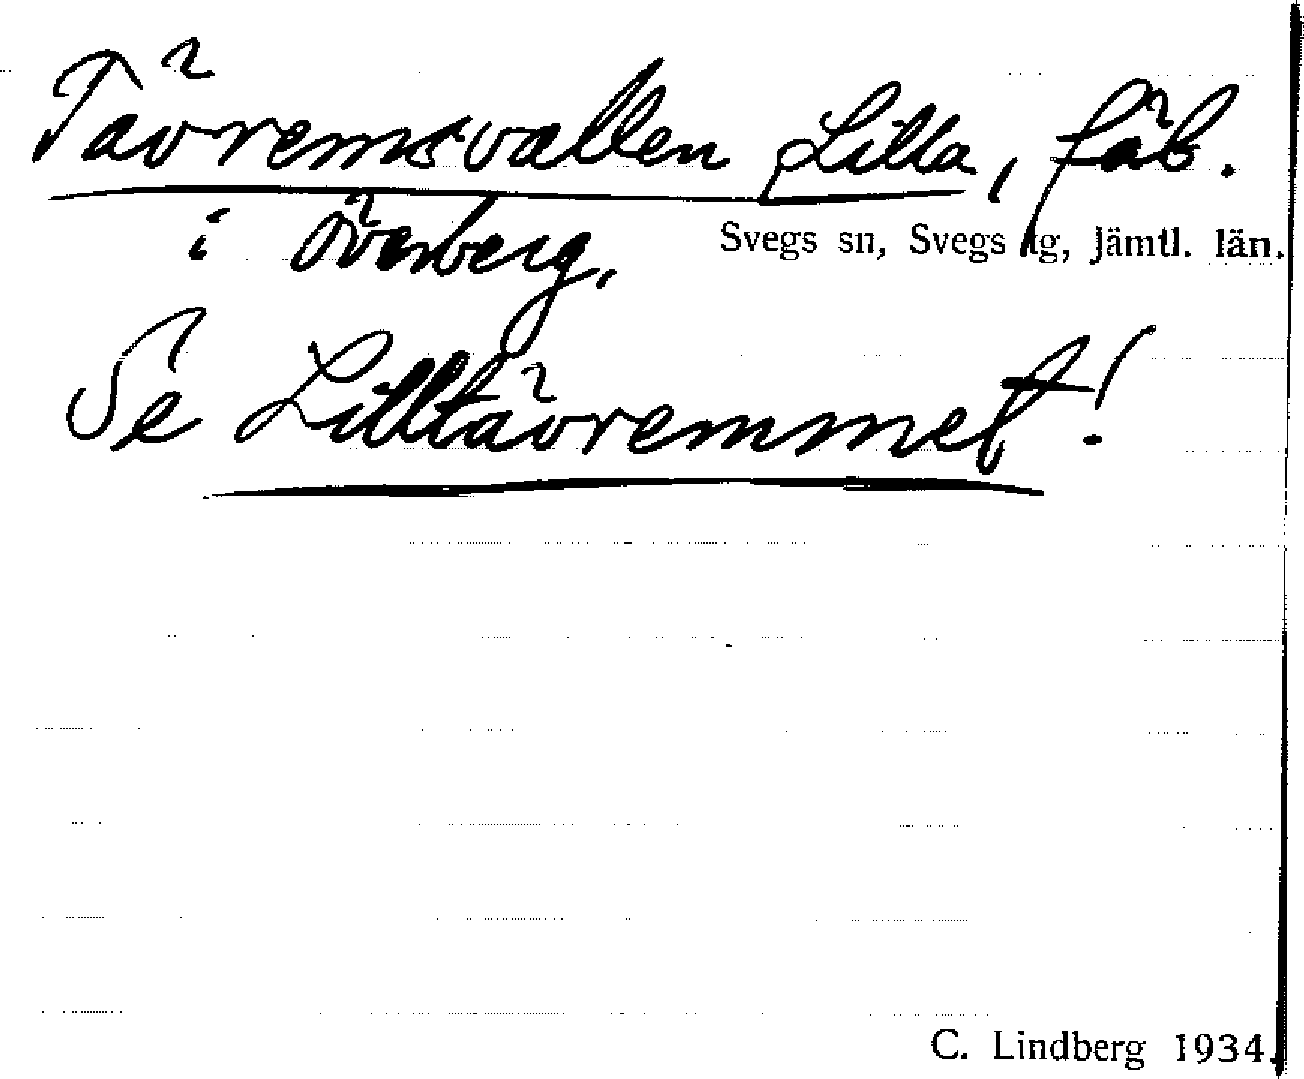 Tävremsvallen Lilla, fäb.
i Överberg.
Svegs sn, Svegs tg, Jämtl. län.
Se Lilltävremmet!
C. Lindberg 1934.